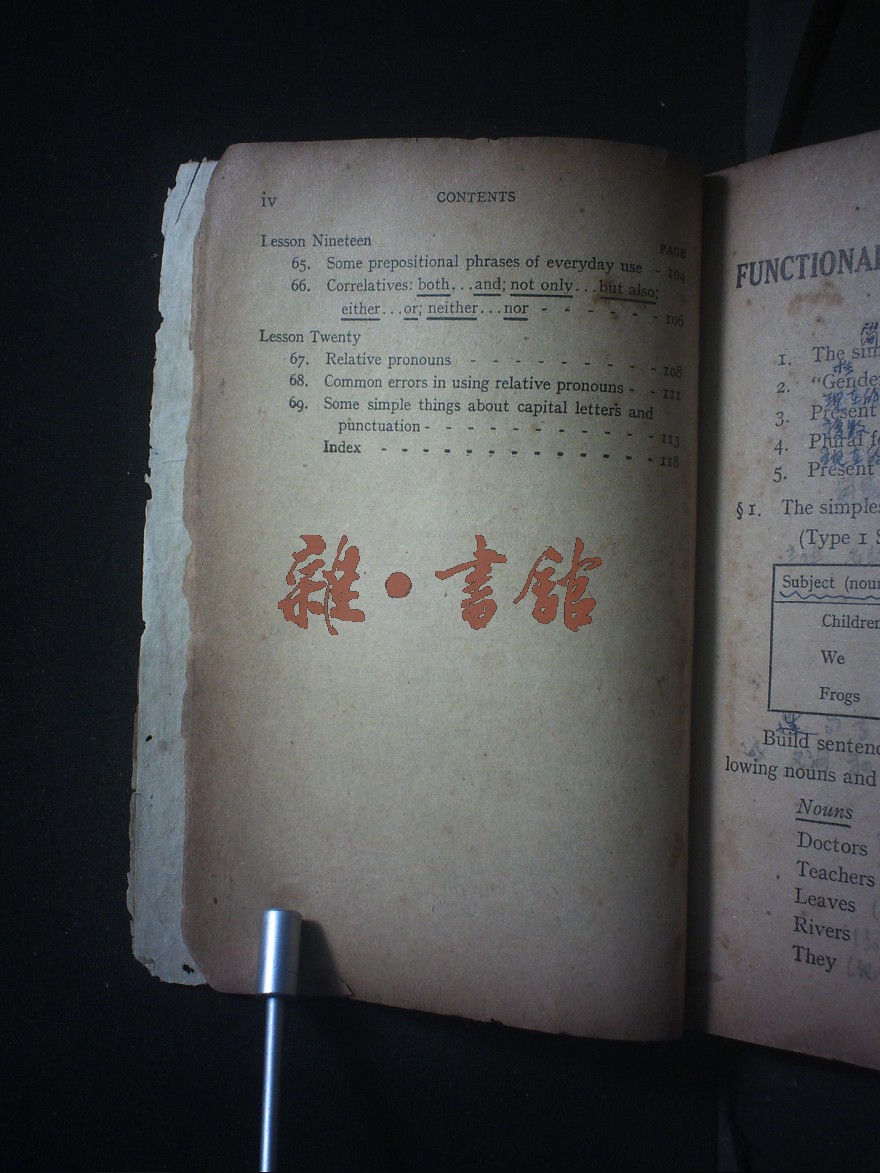 iv
CONTENTS
PAGE
Lesson Nineteen
65. Some prepositional phrases of everyday use - 104
66. Correlatives: both...and; not only...but also;
either...or; neither...nor - - - - - - 106
Lesson Twenty
67. Relative pronouns - - - - - - - - - 108
68. Common errors in using relative pronouns - - 111
69. Some simple things about capital letters and
punctuation - - - - - - - - - - - 113
Index - - - - - - - - - - - - - 118
雜·書館
FUNCTIONAL
1. The sim
2. “Gende
3. Present
4. Plural f
5. Present
§1. The simples
(Type 1 S
Subject (noun
Children
We
Frogs
Build sentenc
lowing nouns and
Nouns
Doctors
Teachers
Leaves
Rivers
They